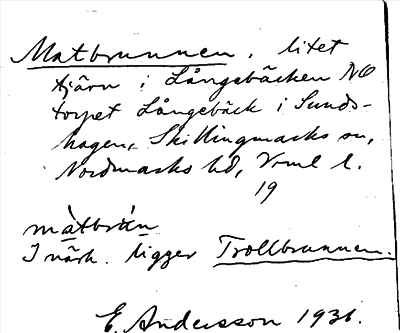 Matbrunnen, litet
tjärn i Långebäcken NO
torpet Långebäck i Sunds-
hagen, Skillingmarks sn,
Nordmarks hd, Vrml l.
19
màtbrǜn
I närh. ligger Trollbrunnen.
E. Andersson 1936.